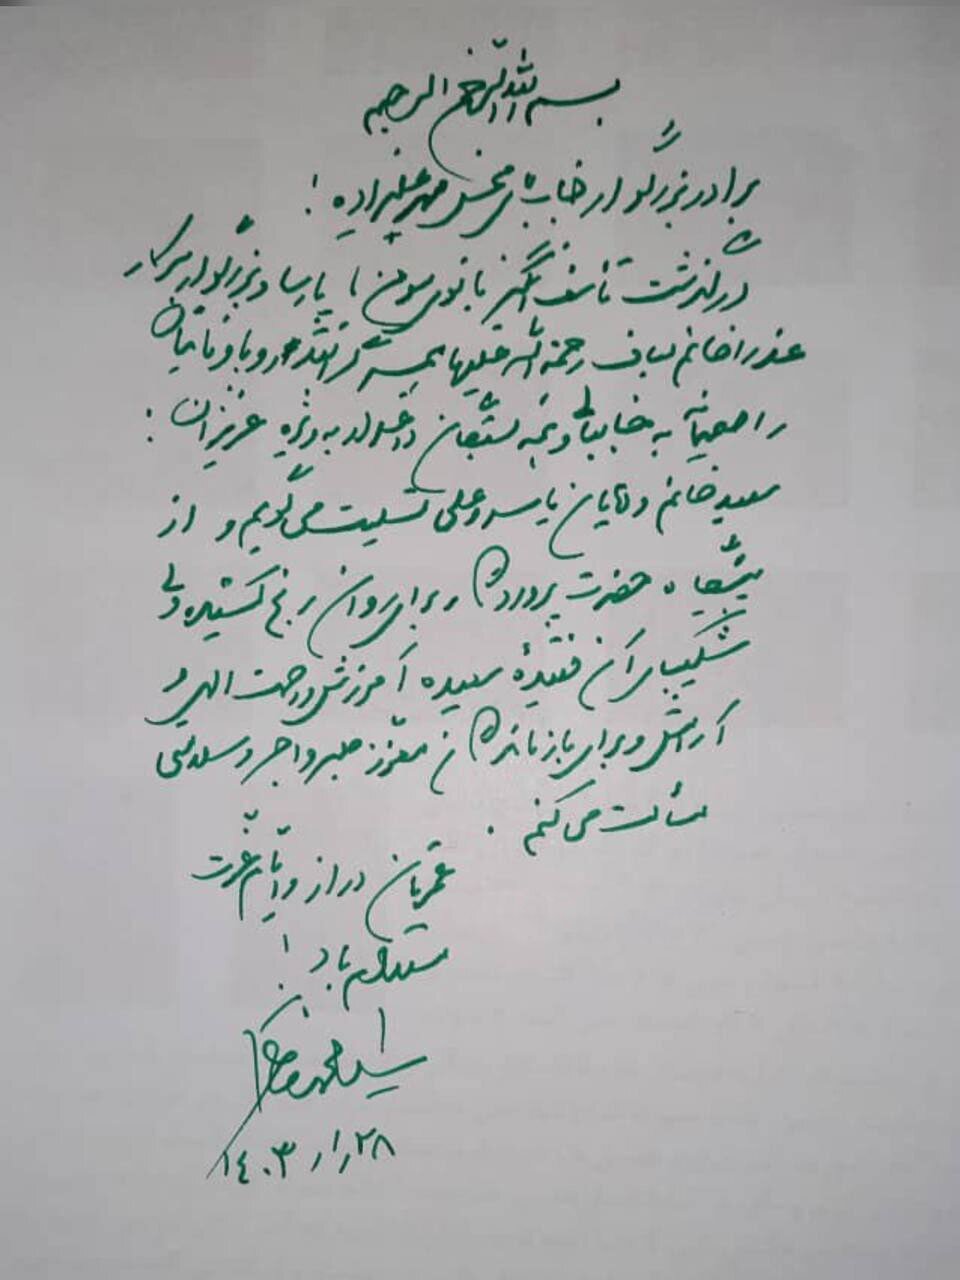 بسم الله الرحمن الرحیم
برادر بزرگوار جناب آقای محسن مهرعلیزاده!
درگذشت تأسف‌انگیز بانوی مومن، پارسا و بزرگوار سرکار
عذرا خانم رحمة الله علیها همسر گرانقدر و باوفایتان
را صمیمانه به جنابعالی و همه بستگان داغدار به ویژه عزیزان:
سعیده خانم و آقایان یاسر و علی تسلیت می‌گویم و از
پیشگاه حضرت پروردگار برای روان رنج کشیده ولی
شکیبای آن فقیدهٔ سعیده آمرزش و رحمت الهی و
آرامش و برای بازماندگان معزز صبر و اجر و سلامتی
مسألت می‌کنم.
عمرتان دراز و ایام عزت
مستدام باد!
سید محمد خاتمی
۱۴۰۳/۱/۲۸